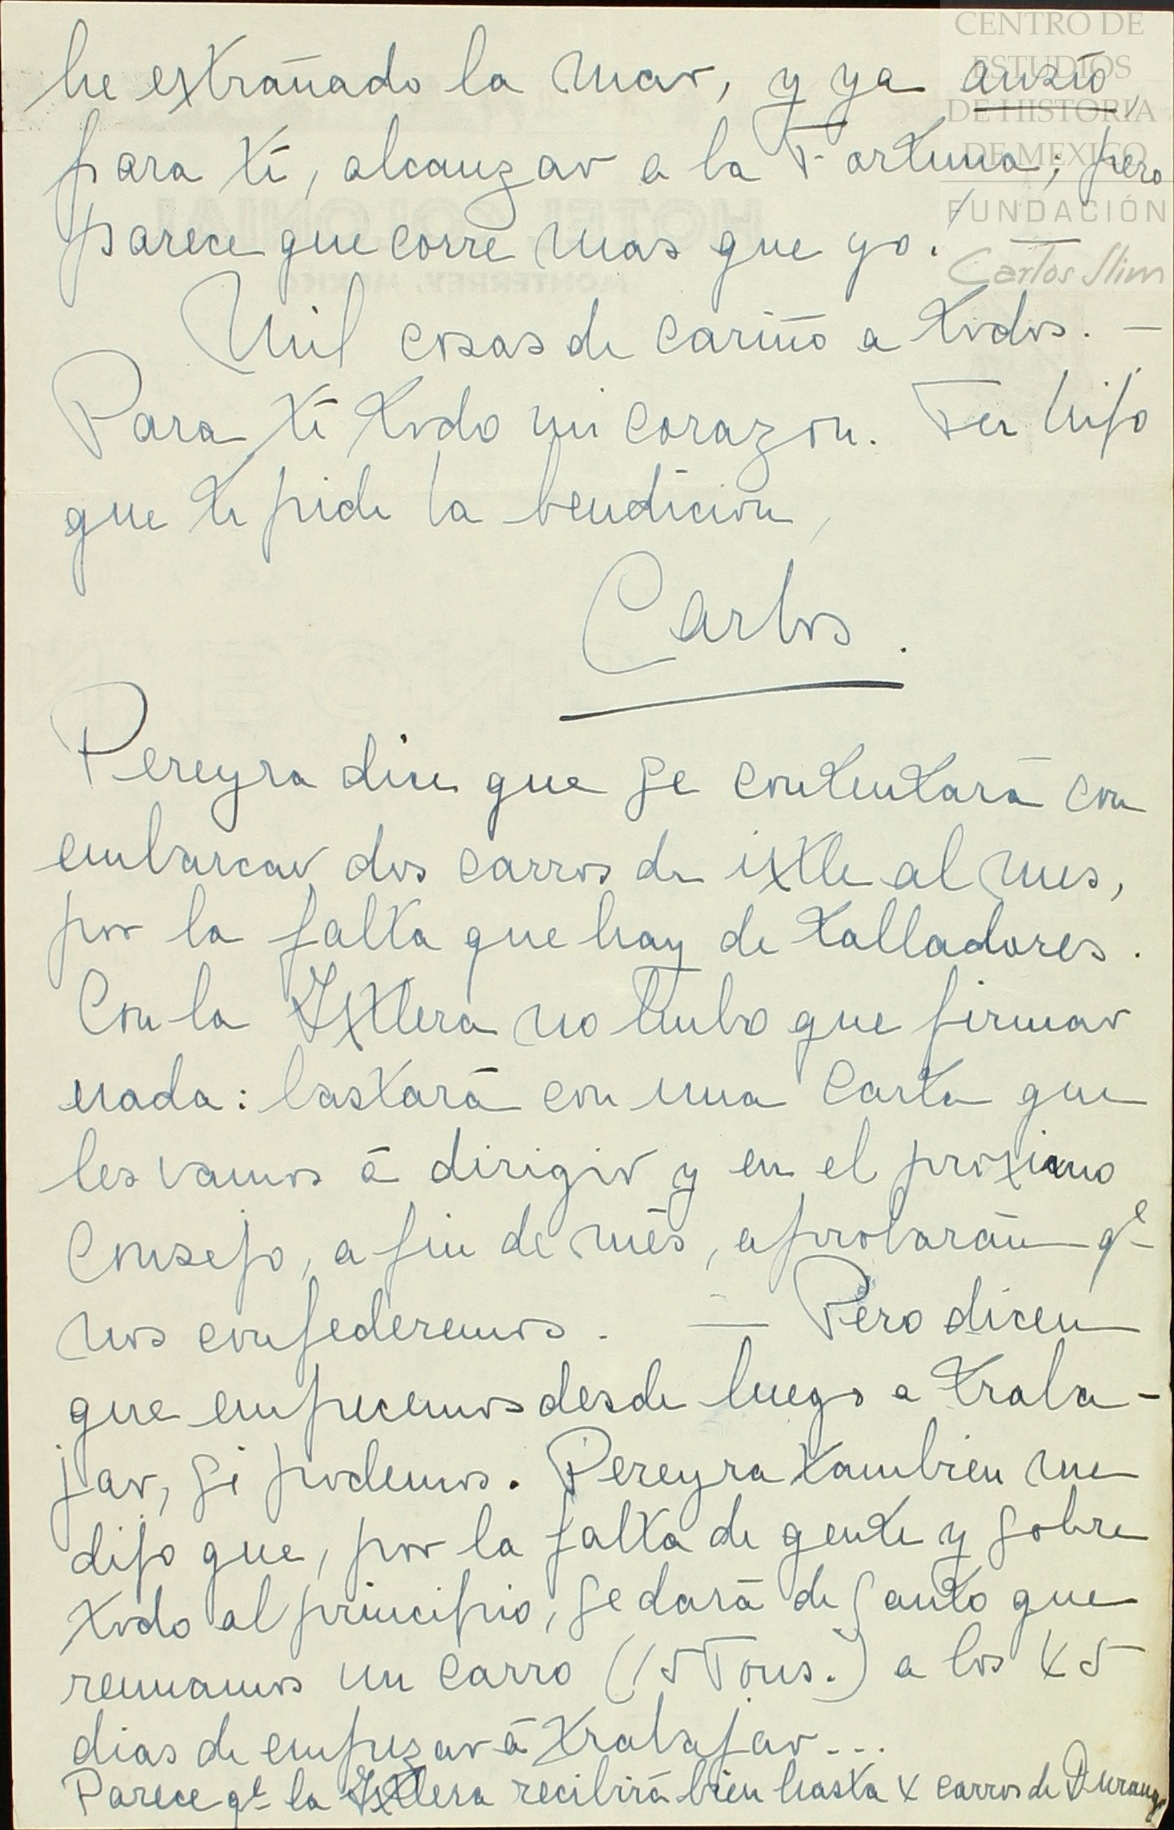 CENTRO DE
ESTUDIOS
DE HISTORIA
DE MEXICO
FUNDACIÓN
Carlos Slim
he extrañado la mar, y ya ansío,
para tí, alcanzar a la Fortuna; pero
parece que corre mas que yo. —
Mil cosas de cariño a todos. —
Para tí todo mi corazon. Tu hijo
que te pide la bendicion,
Carlos.
Pereyra dice que se contentará con
embarcar dos carros de ixtle al mes,
por la falta que hay de talladores.
Con la Ixtlera no hubo que firmar
nada: bastará con una carta que
les vamos á dirigir y en el proximo
Consejo, a fin de més, aprobarán qe
nos confederemos. — Pero dicen
que empecemos desde luego a traba-
jar, si podemos. Pereyra tambien me
dijo que, por la falta de gente y sobre
todo al principio, se dará de santo que
reunamos un carro (15 Tons.) a los 45
dias de empezar á trabajar...
Parece qe la Ixtlera recibirá bien hasta 4 carros de Durango
HOTEL COLONIAL
MONTERREY, MEXICO